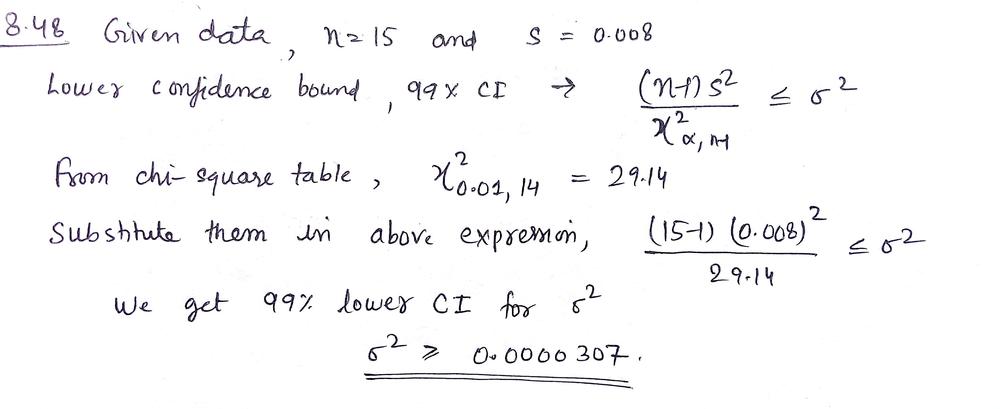 8.48 Given data, n=15 and s = 0.008
Lower confidence bound, 99% CI → (n-1)s²/χ²α,n-1 ≤ σ²
from chi-square table, χ²0.01,14 = 29.14
Substitute them in above expression, (15-1)(0.008)²/29.14 ≤ σ²
We get 99% lower CI for σ²
σ² ≥ 0.0000307.